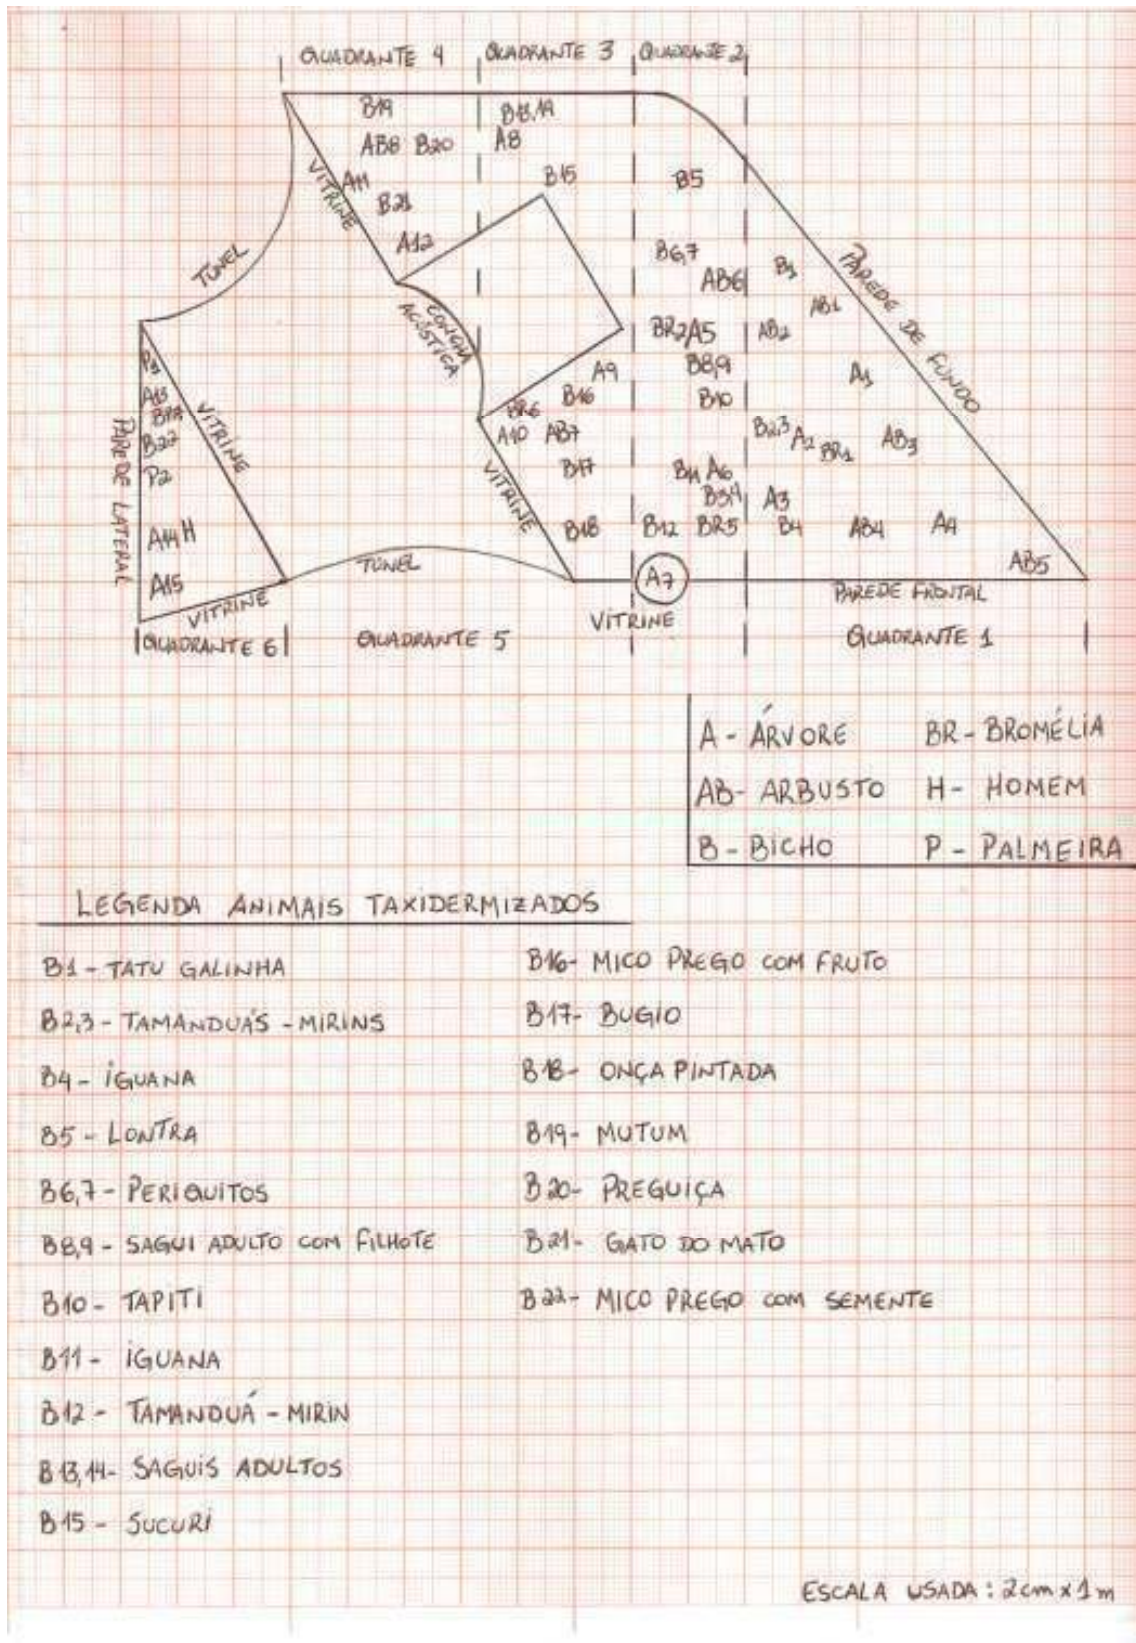 QUADRANTE 4 QUADRANTE 3 QUADRANTE 2
B19 B13,14
AB8 B20 A8
A11 B15 B5
B21
A12
VITRINE
TÚNEL
B6,7
AB6
B1
AB1
PAREDE DE FUNDO
CONCHA
ACÚSTICA
BR2 A5 AB2
A9 B8,9 A1
B16 B10
BR6
A10 AB7 B2,3 A2 BR1 AB3
B17 B11 A6
A3
B18 B12 BR5 B4 AB4 A4
VITRINE
AB5
A13
B22
P2
A14 H
A15
VITRINE
PAREDE LATERAL
VITRINE
TÚNEL
A7
VITRINE
PAREDE FRONTAL
QUADRANTE 6 QUADRANTE 5 QUADRANTE 1
A - ÁRVORE BR - BROMÉLIA
AB - ARBUSTO H - HOMEM
B - BICHO P - PALMEIRA
LEGENDA ANIMAIS TAXIDERMIZADOS
B1 - TATU GALINHA
B2,3 - TAMANDUÁS - MIRINS
B4 - IGUANA
B5 - LONTRA
B6,7 - PERIQUITOS
B8,9 - SAGUI ADULTO COM FILHOTE
B10 - TAPITI
B11 - IGUANA
B12 - TAMANDUÁ - MIRIN
B13,14 - SAGUIS ADULTOS
B15 - SUCURI
B16 - MICO PREGO COM FRUTO
B17 - BUGIO
B18 - ONÇA PINTADA
B19 - MUTUM
B20 - PREGUIÇA
B21 - GATO DO MATO
B22 - MICO PREGO COM SEMENTE
ESCALA USADA : 2cm x 1m